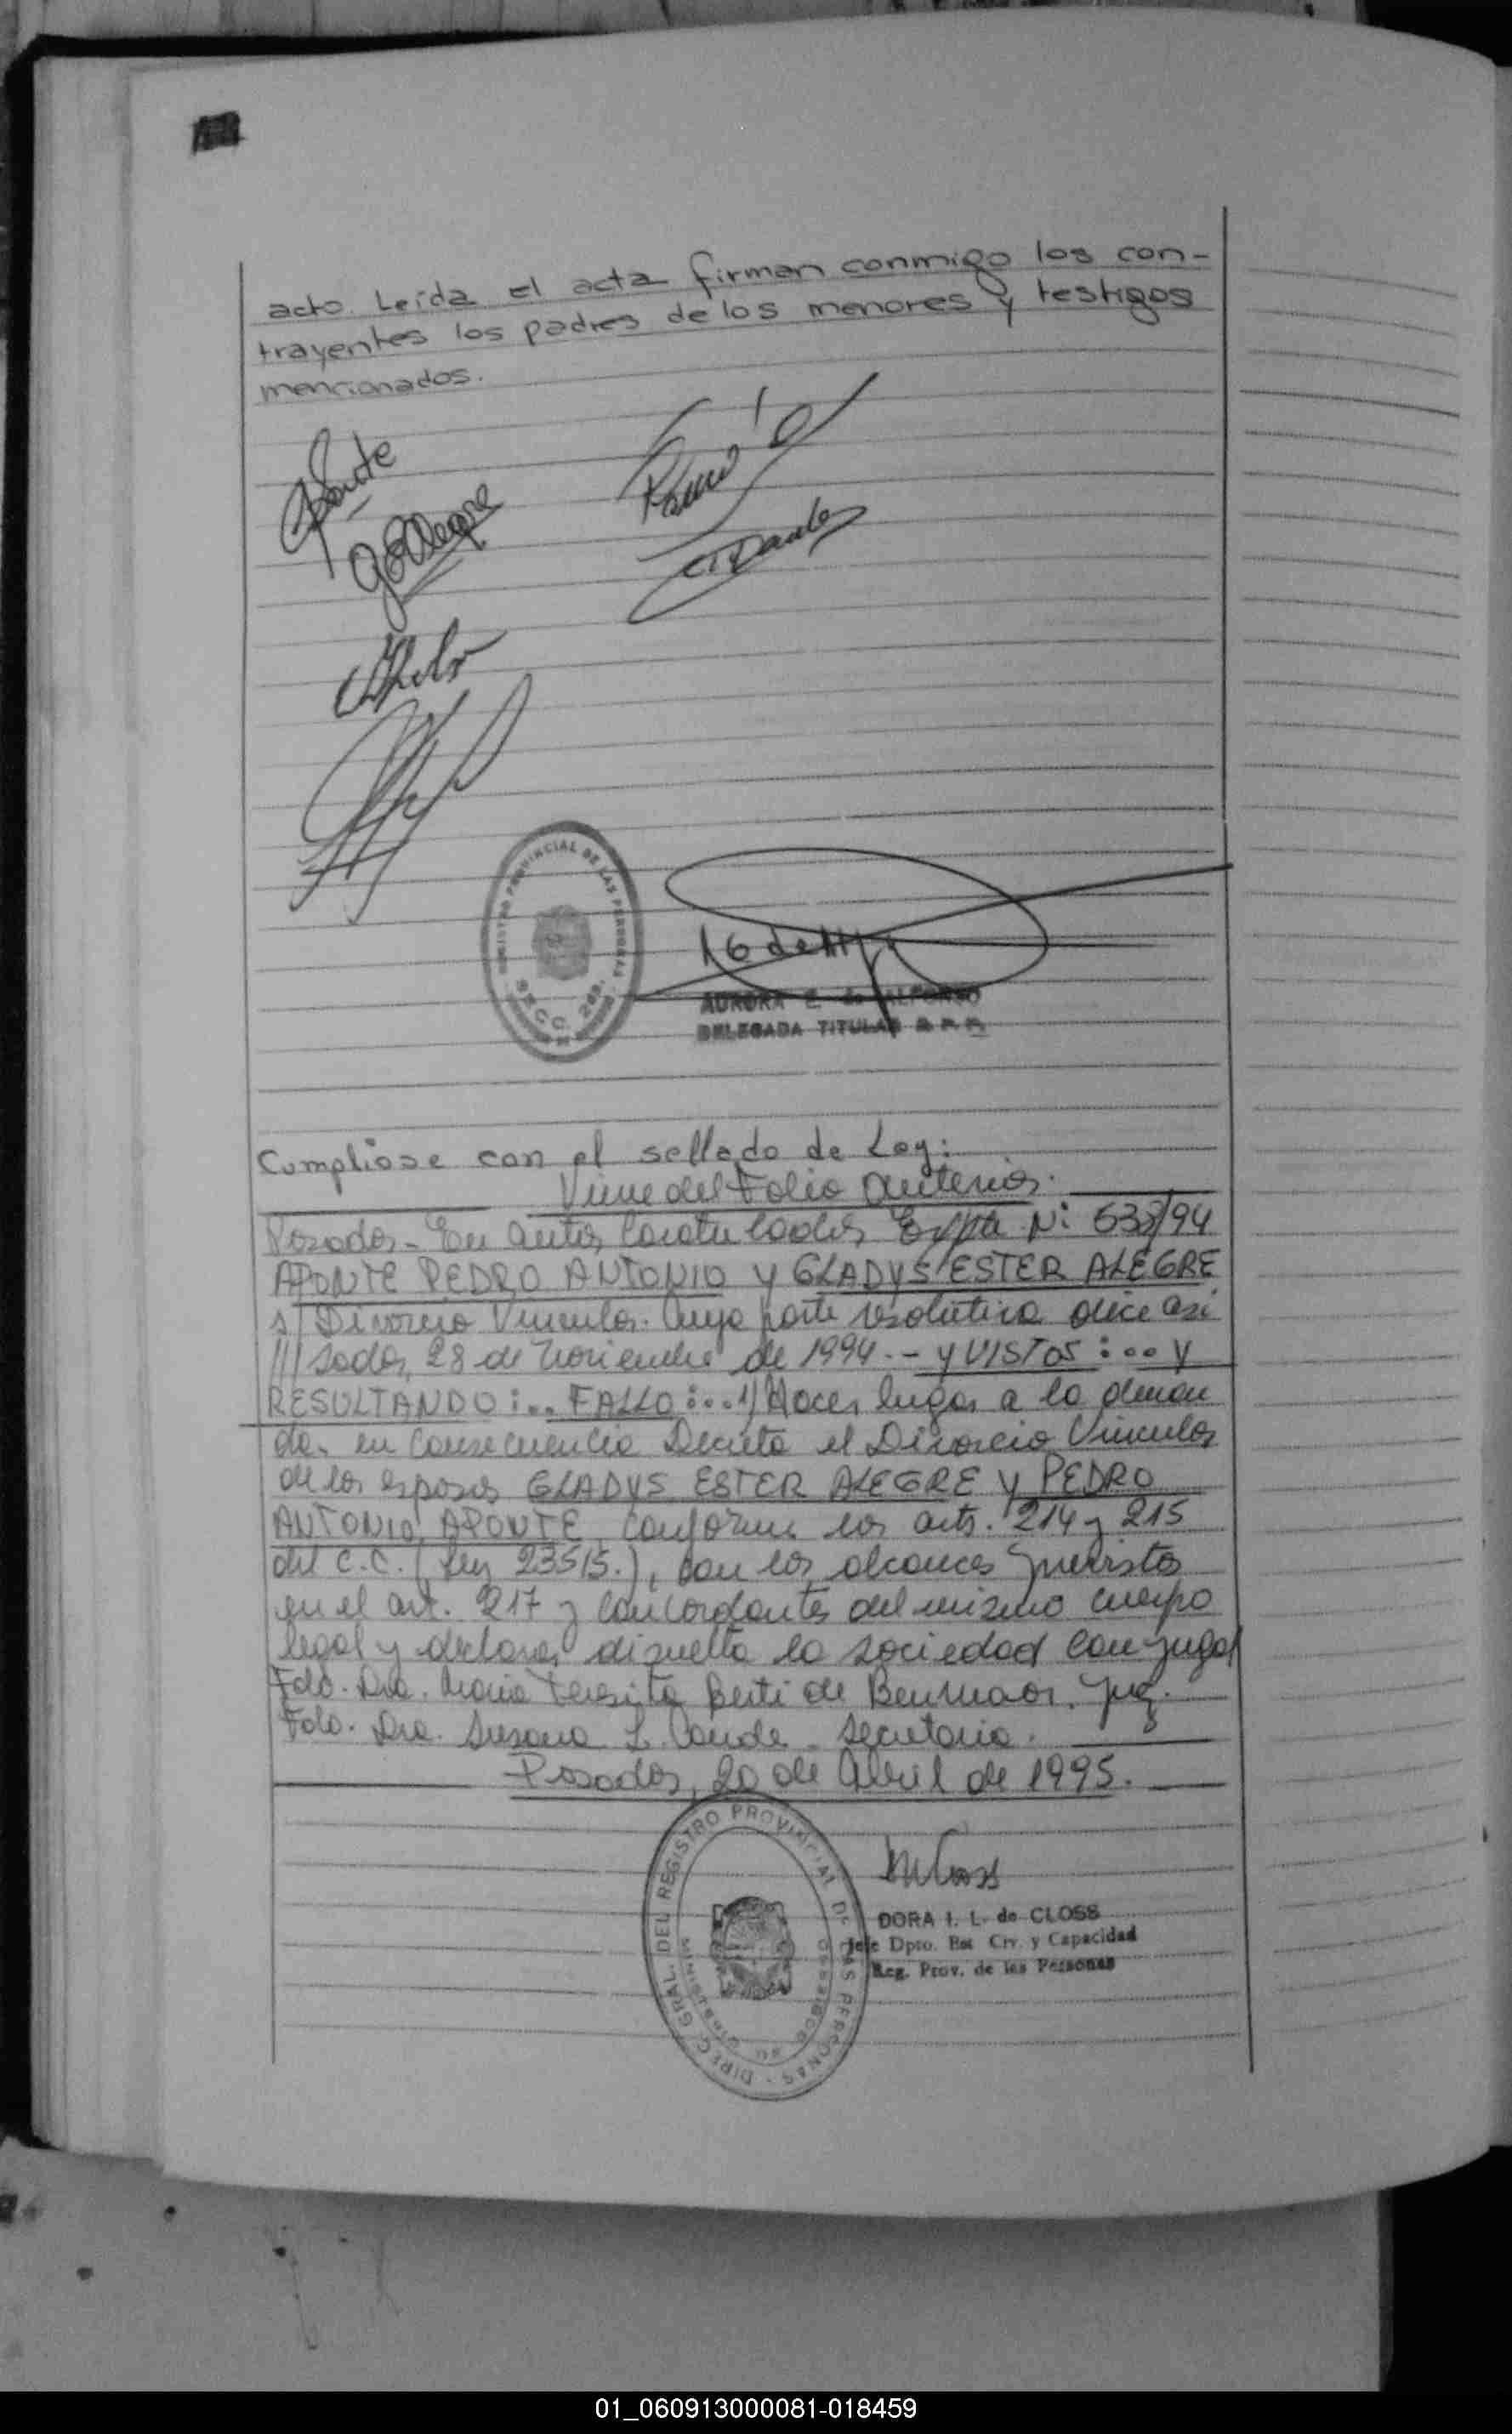 acto. Leída el acta firman conmigo los con-
trayentes los padres de los menores y testigos
mencionados.
Aponte
GEAlegre
REGISTRO PROVINCIAL DE LAS PERSONAS
SECC.
AURORA E. de ALFONSO
DELEGADA TITULAR R. P. P.
Cumpliose con el sellado de Ley:
Viene del Folio anterior.
Posadas - En autos Caratulados Expte Nº 638/94
APONTE PEDRO ANTONIO y GLADYS ESTER ALEGRE
s/ Divorcio Vincular. Cuya parte resolutiva dice así
///sadas, 28 de Noviembre de 1994.- y VISTOS:... y
RESULTANDO:.. FALLO:...1) Hacer lugar a la deman
da, en consecuencia Decreto el Divorcio Vincular
de los esposos GLADYS ESTER ALEGRE y PEDRO
ANTONIO APONTE, conforme los arts. 214 y 215
del C.C. (Ley 23515.), con los alcances previstos
en el art. 217 y concordantes del mismo cuerpo
legal y declarar disuelta la sociedad conyugal
Fdo. Dra. Maria Teresita Berti de Benmaor. Juez.
Fdo. Dra. Susana L. Conde - Secretaria.
Posadas, 20 de Abril de 1995.
DIREC. GRAL. DEL REGISTRO PROVINCIAL DE LAS PERSONAS
MINISTERIO DE GOBIERNO
DORA I. L. de CLOSS
Jefe Dpto. Est Civ. y Capacidad
Reg. Prov. de las Personas
01_060913000081-018459